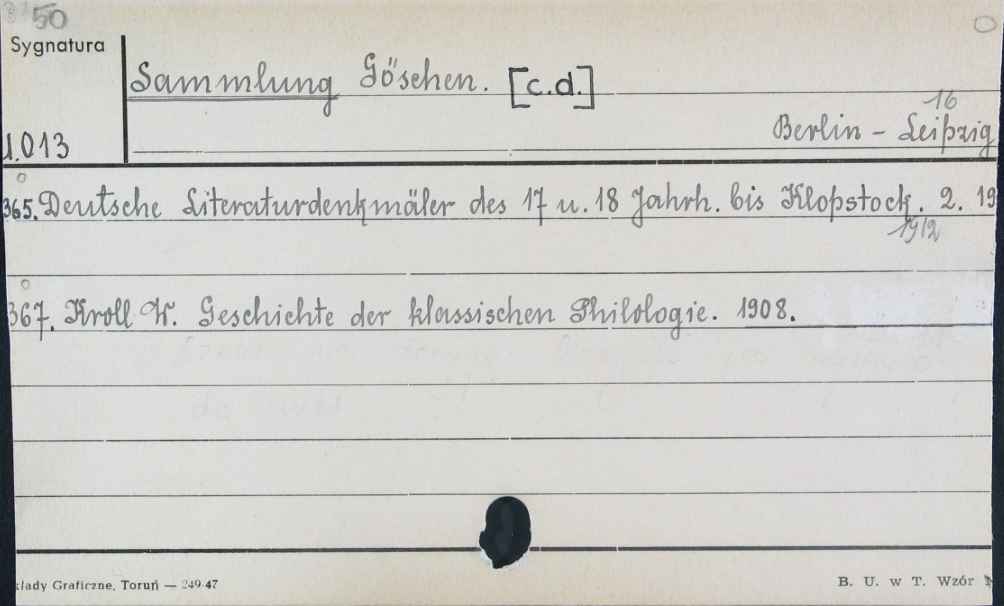 50
Sygnatura
Sammlung Göschen. [c.d.]
16
Berlin - Leipzig
1.013
365. Deutsche Literaturdenkmäler des 17 u. 18 Jahrh. bis Klopstock. 2. 19
1912
367. Kroll W. Geschichte der klassischen Philologie. 1908.
kłady Graficzne, Toruń — 249-47
B. U. w T. Wzór